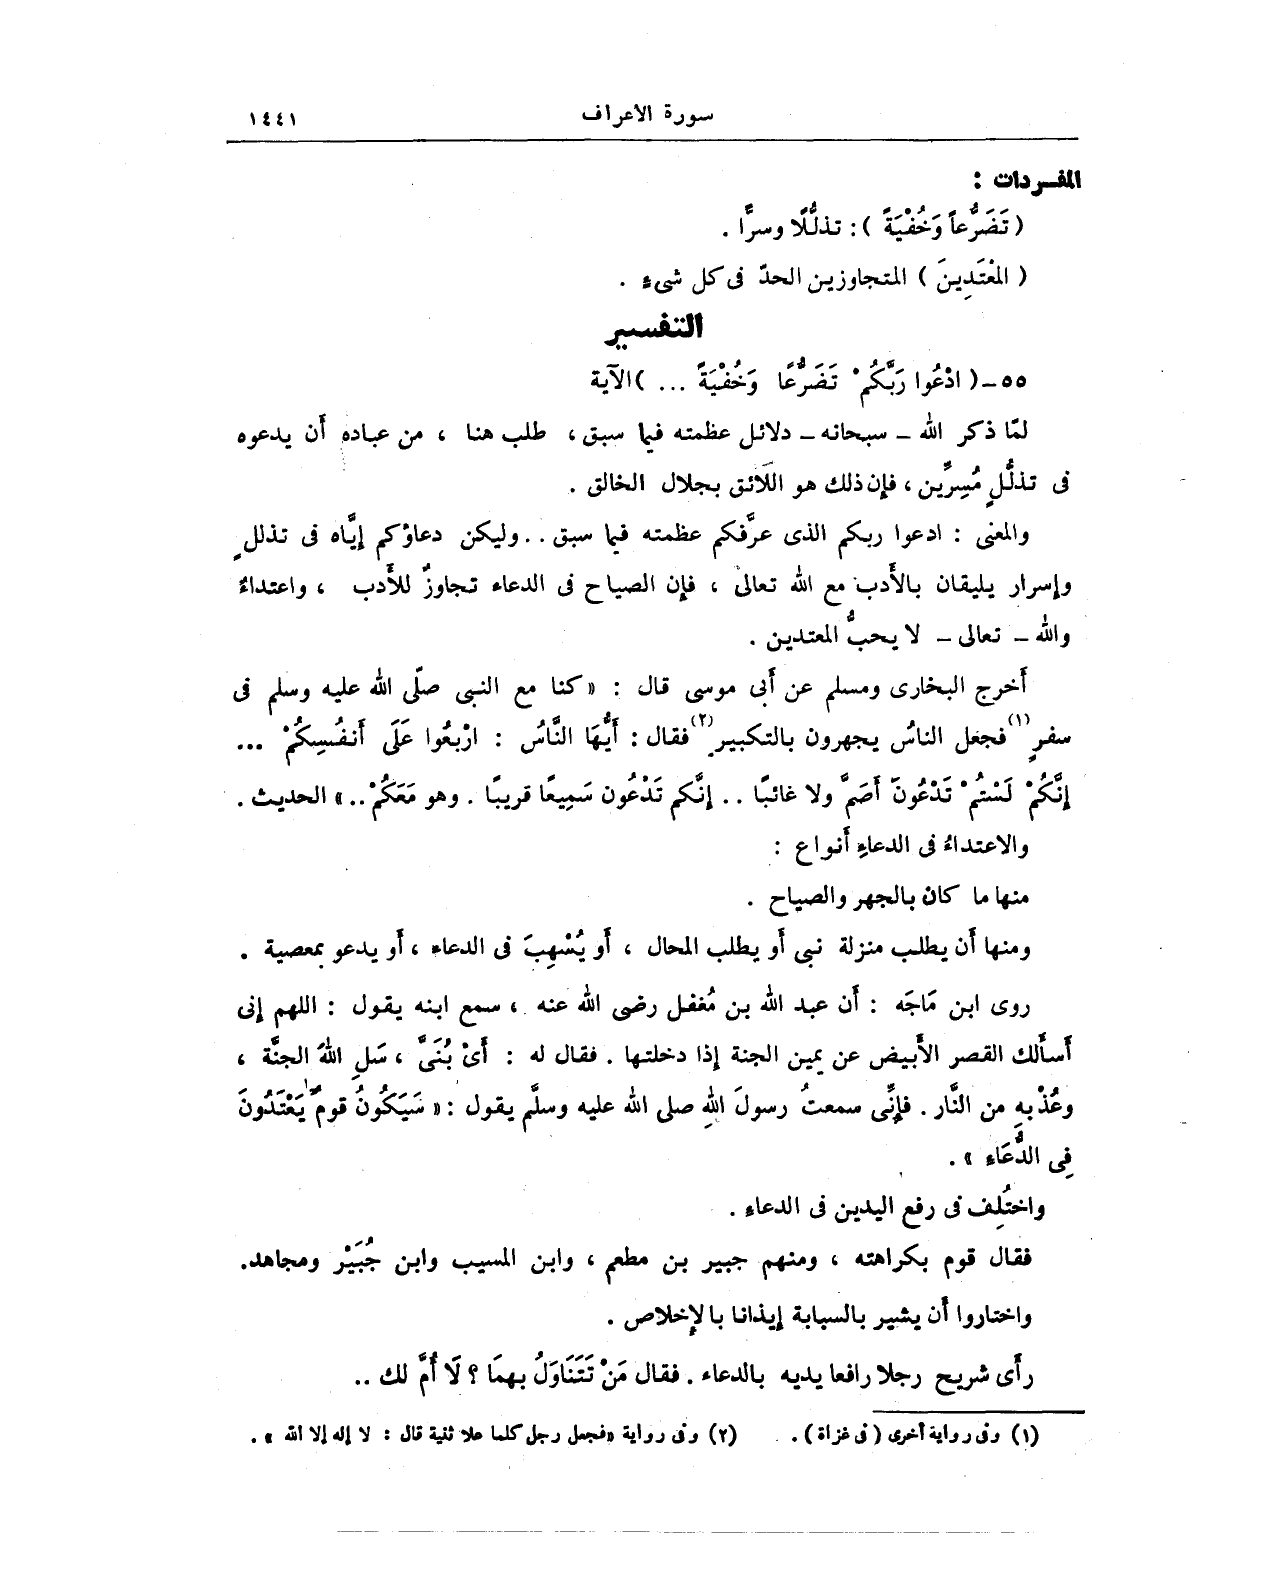 سورة الاعراف ١٤٤١
المفردات :
( تَضَرُّعاً وَخُفْيَةً ) : تذلُّلًا وسرًّا .
( المُعْتَدِينَ ) المتجاوزين الحدّ فى كل شىء .
التفسير
٥٥ـ ( ادْعُوا رَبَّكُمْ تَضَرُّعًا وَخُفْيَةً ... ) الآية
لمّا ذكر الله ـ سبحانه ـ دلائل عظمته فيما سبق ، طلب هنا ، من عباده أن يدعوه
فى تذلُّلٍ مُسِرِّين ، فإن ذلك هو اللَائق بجلال الخالق .
والمعنى : ادعوا ربكم الذى عرَّفكم عظمته فيما سبق .. وليكن دعاؤكم إيَّاه فى تذللٍ
وإسرار يليقان بالأَدب مع الله تعالى ، فإن الصياح فى الدعاء تجاوزٌ للأَدب ، واعتداءٌ
والله ـ تعالى ـ لا يحبُّ المعتدين .
أخرج البخارى ومسلم عن أبى موسى قال : « كنا مع النبى صلّى الله عليه وسلم فى
سفرٍ (١) فجعل الناسُ يجهرون بالتكبير (٢) فقال : أَيُّهَا النَّاسُ : ارْبعُوا عَلَى أَنفُسِكُمْ ...
إنَّكُمْ لَسْتُمْ تَدْعُونَ أَصَمَّ ولا غائبًا .. إنَّكم تَدْعُون سَمِيعًا قريبًا . وهو مَعَكُمْ .. » الحديث .
والاعتداءُ فى الدعاءِ أنواع :
منها ما كان بالجهر والصياح .
ومنها أن يطلب منزلة نبى أو يطلب المحال ، أو يُسْهِبَ فى الدعاء ، أو يدعو بمعصية .
روى ابن مَاجَه : أن عبد الله بن مُغفل رضى الله عنه ، سمع ابنه يقول : اللهم إنى
أسأَلك القصر الأَبيض عن يمين الجنة إذا دخلتها . فقال له : أَىْ بُنَىَّ ، سَلِ اللهَ الجنَّة ،
وعُذْ بِهِ من النَّار . فإنِّى سمعتُ رسولَ اللهِ صلى الله عليه وسلَّم يقول : « سَيَكُونُ قومٌ يَعْتَدُونَ
فِى الدُّعَاءِ » .
واختُلِف فى رفع اليدين فى الدعاء .
فقال قوم بكراهته ، ومنهم جبير بن مطعم ، وابن المسيب وابن جُبَيْر ومجاهد.
واختاروا أن يشير بالسبابة إيذانا بالإخلاص .
رأَى شريح رجلا رافعا يديه بالدعاء . فقال مَنْ تَتَنَاوَلُ بهمَا ؟ لَا أُمَّ لك ..
(١) وفى رواية أخرى ( فى غزاة ) . (٢) وفى رواية «فجعل رجل كلما علا ثنية قال : لا إله إلا الله » .